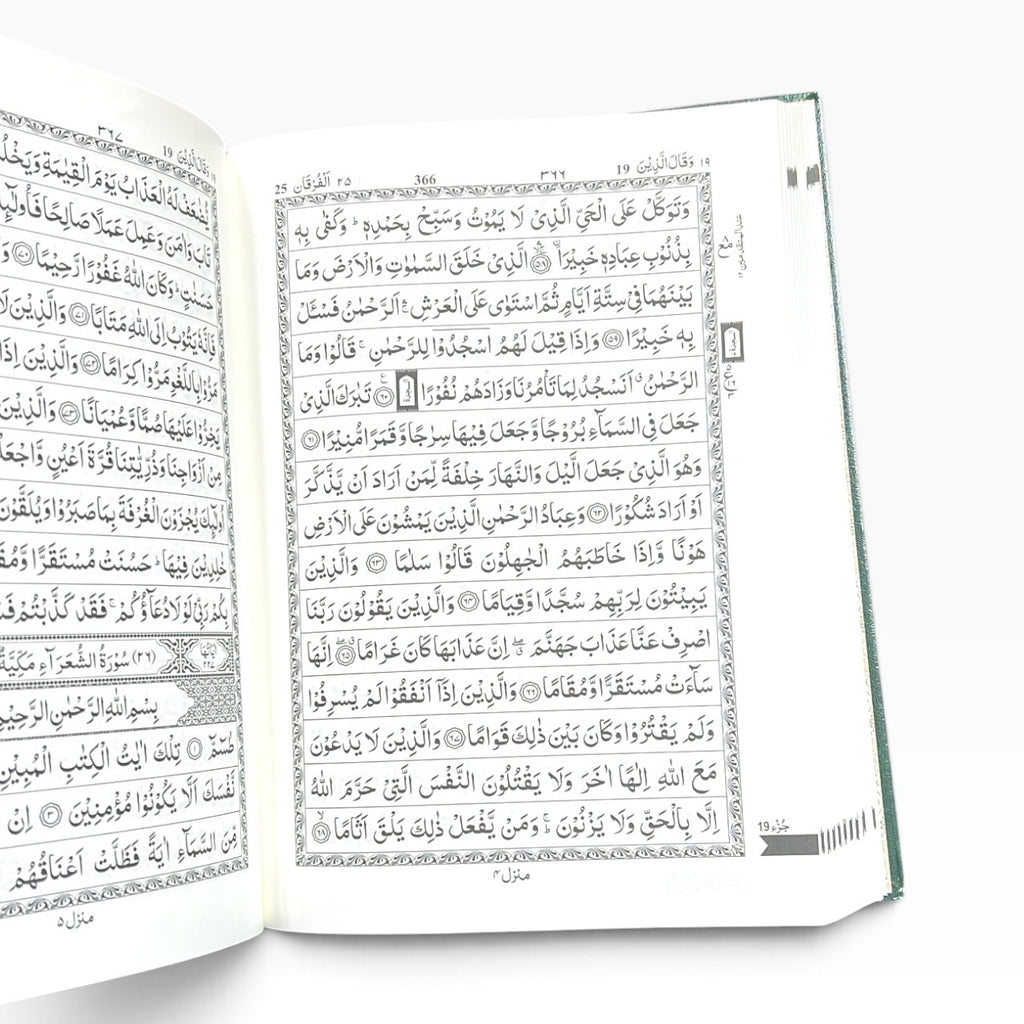 ١٩ وَقَالَ الَّذِيْنَ 19 ٣٦٦ 366 ٢٥ اَلْفُرْقَان 25
وَتَوَكَّلْ عَلَى الْحَيِّ الَّذِيْ لَا يَمُوْتُ وَسَبِّحْ بِحَمْدِهٖ ؕ وَكَفٰى بِهٖ
بِذُنُوْبِ عِبَادِهٖ خَبِيْرَا ۟ۙۛ ﴿۵۸﴾ الَّذِيْ خَلَقَ السَّمٰوٰتِ وَالْاَرْضَ وَمَا
بَيْنَهُمَا فِيْ سِتَّةِ اَيَّامٍ ثُمَّ اسْتَوٰى عَلَى الْعَرْشِ ۛۚ اَلرَّحْمٰنُ فَسْـَٔلْ
بِهٖ خَبِيْرًا ﴿۵۹﴾ وَاِذَا قِيْلَ لَهُمُ اسْجُدُوْا لِلرَّحْمٰنِ ۚ قَالُوْا وَمَا
الرَّحْمٰنُ ۗ اَنَسْجُدُ لِمَا تَاْمُرُنَا وَزَادَهُمْ نُفُوْرًا ﴿۶۰﴾ تَبٰرَكَ الَّذِيْ
جَعَلَ فِي السَّمَآءِ بُرُوْجًا وَّجَعَلَ فِيْهَا سِرٰجًا وَّقَمَرًا مُّنِيْرًا ﴿۶۱﴾
وَهُوَ الَّذِيْ جَعَلَ الَّيْلَ وَالنَّهَارَ خِلْفَةً لِّمَنْ اَرَادَ اَنْ يَّذَّكَّرَ
اَوْ اَرَادَ شُكُوْرًا ﴿۶۲﴾ وَعِبَادُ الرَّحْمٰنِ الَّذِيْنَ يَمْشُوْنَ عَلَى الْاَرْضِ
هَوْنًا وَّاِذَا خَاطَبَهُمُ الْجٰهِلُوْنَ قَالُوْا سَلٰمًا ﴿۶۳﴾ وَالَّذِيْنَ
يَبِيْتُوْنَ لِرَبِّهِمْ سُجَّدًا وَّقِيَامًا ﴿۶۴﴾ وَالَّذِيْنَ يَقُوْلُوْنَ رَبَّنَا
اصْرِفْ عَنَّا عَذَابَ جَهَنَّمَ ۖ اِنَّ عَذَابَهَا كَانَ غَرَامًا ﴿۶۵﴾ اِنَّهَا
سَآءَتْ مُسْتَقَرًّا وَّمُقَامًا ﴿۶۶﴾ وَالَّذِيْنَ اِذَآ اَنْفَقُوْا لَمْ يُسْرِفُوْا
وَلَمْ يَقْتُرُوْا وَكَانَ بَيْنَ ذٰلِكَ قَوَامًا ﴿۶۷﴾ وَالَّذِيْنَ لَا يَدْعُوْنَ
مَعَ اللّٰهِ اِلٰهًا اٰخَرَ وَلَا يَقْتُلُوْنَ النَّفْسَ الَّتِيْ حَرَّمَ اللّٰهُ
اِلَّا بِالْحَقِّ وَلَا يَزْنُوْنَ ۚ وَمَنْ يَّفْعَلْ ذٰلِكَ يَلْقَ اَثَامًا ﴿۶۸﴾
منزل ۴
جُزْء 19
١٩ وَقَالَ الَّذِيْنَ 19 ٣٦٧
يُّضٰعَفْ لَهُ الْعَذَابُ يَوْمَ الْقِيٰمَةِ وَيَخْلُدْ
تَابَ وَاٰمَنَ وَعَمِلَ عَمَلًا صَالِحًا فَاُولٰٓئِكَ
حَسَنٰتٍ ؕ وَكَانَ اللّٰهُ غَفُوْرًا رَّحِيْمًا ﴿۷۰﴾
فَاِنَّهٗ يَتُوْبُ اِلَى اللّٰهِ مَتَابًا ﴿۷۱﴾ وَالَّذِيْنَ لَا
مَرُّوْا بِاللَّغْوِ مَرُّوْا كِرَامًا ﴿۷۲﴾ وَالَّذِيْنَ اِذَا
يَخِرُّوْا عَلَيْهَا صُمًّا وَّعُمْيَانًا ﴿۷۳﴾ وَالَّذِيْنَ
مِنْ اَزْوَاجِنَا وَذُرِّيّٰتِنَا قُرَّةَ اَعْيُنٍ وَّاجْعَلْنَا
اُولٰٓئِكَ يُجْزَوْنَ الْغُرْفَةَ بِمَا صَبَرُوْا وَيُلَقَّوْنَ
خٰلِدِيْنَ فِيْهَا ؕ حَسُنَتْ مُسْتَقَرًّا
بِكُمْ رَبِّيْ لَوْلَا دُعَآؤُكُمْ ۚ فَقَدْ كَذَّبْتُمْ
(٢٦) سُوْرَةُ الشُّعَرَآءِ مَكِّيَّةٌ
بِسْمِ اللّٰهِ الرَّحْمٰنِ الرَّحِيْمِ
طٰسٓمّٓ ﴿۱﴾ تِلْكَ اٰيٰتُ الْكِتٰبِ الْمُبِيْنِ
نَّفْسَكَ اَلَّا يَكُوْنُوْا مُؤْمِنِيْنَ ﴿۳﴾ اِنْ
مِّنَ السَّمَآءِ اٰيَةً فَظَلَّتْ اَعْنَاقُهُمْ
منزل ۵